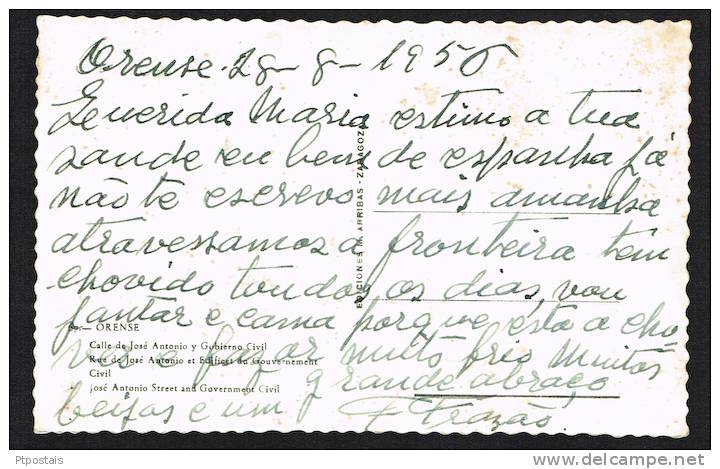 Orense - 28 - 8 - 1956
Querida Maria estimo a tua
saude eu bem de espanha já
não te escrevo mais amanha
atravessamos a fronteira tem
chovido tondos os dias, vou
jantar e cama porque esta a cho-
ver e a fazer muito frio Muitos
beijos e um grande abraço
F Frazão
EDICIONES M. ARRIBAS - ZARAGOZA
ORENSE
Calle de José Antonio y Gobierno Civil
Rue de José Antonio et Edifice du Gouvernement
Civil
José Antonio Street and Government Civil
Ptpostais
delcampe.net